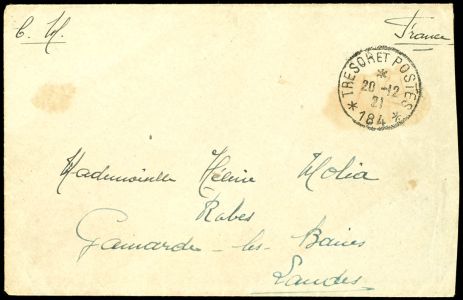 C. M. France
TRESOR ET POSTES
*
20 -12
21
* 184 *
Mademoiselle Hélène Molia
Rabes
Gamarde-les-Baines
Landes